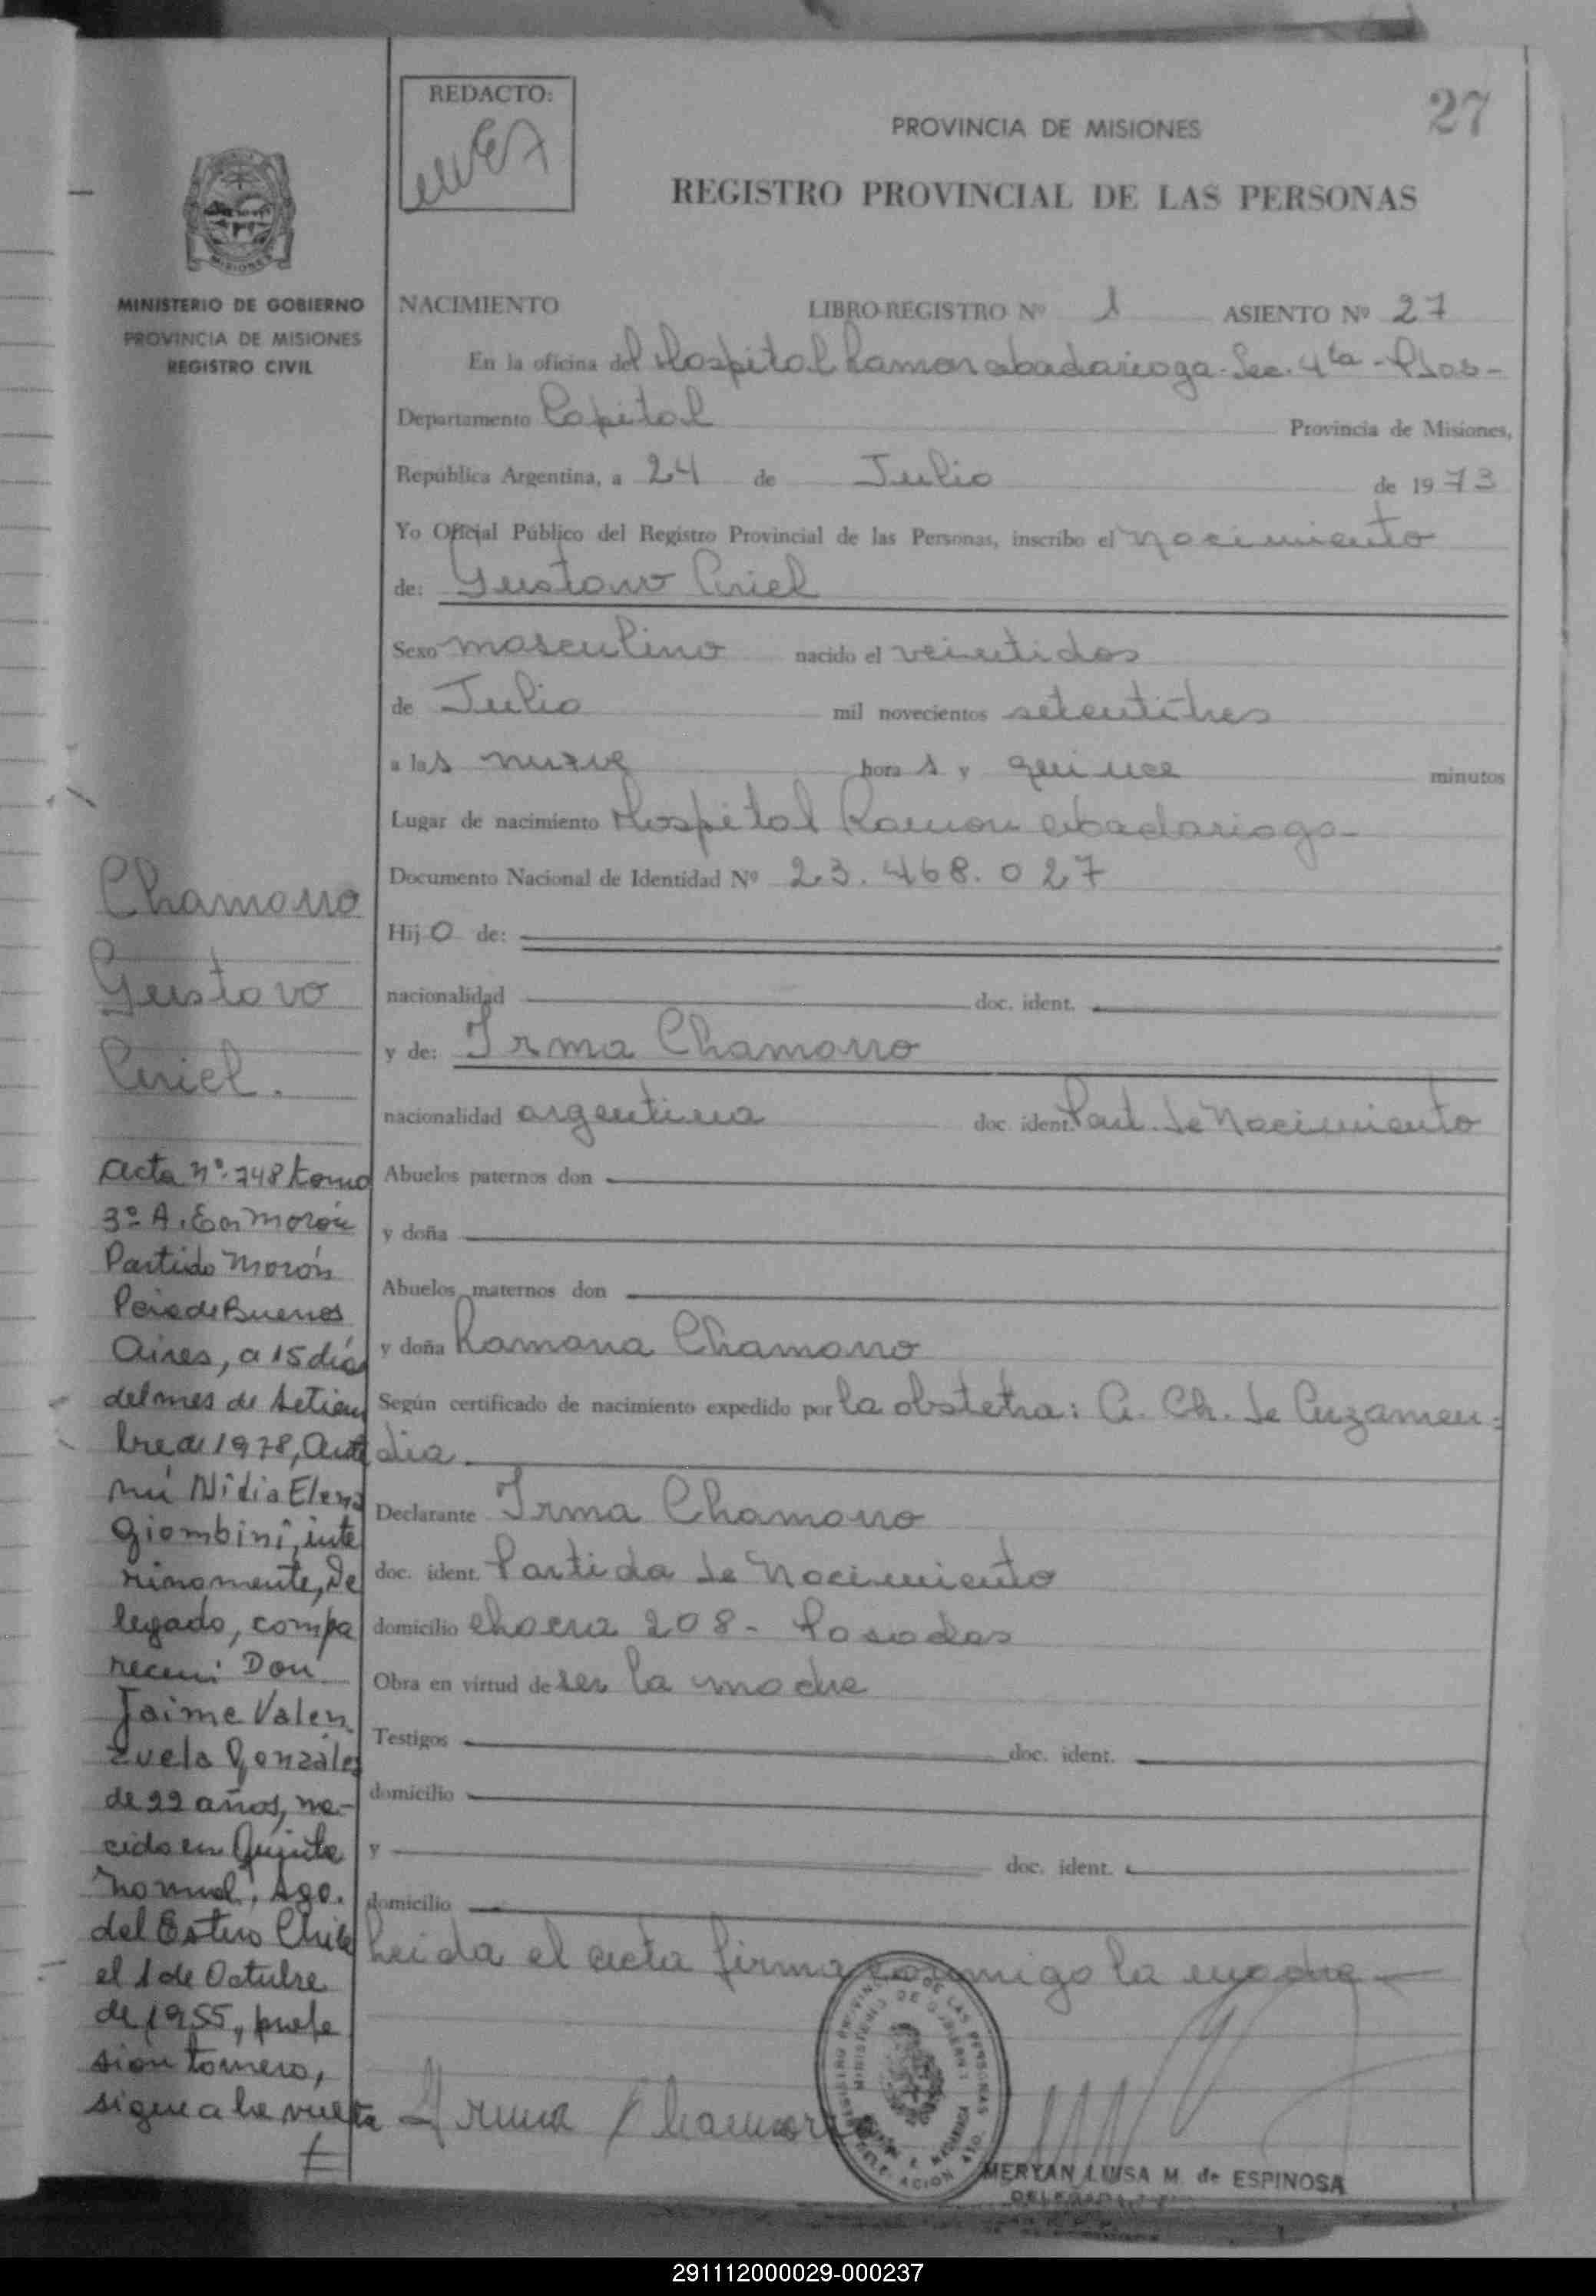 27
REDACTO:
PROVINCIA DE MISIONES
REGISTRO PROVINCIAL DE LAS PERSONAS
MISIONES
MINISTERIO DE GOBIERNO
PROVINCIA DE MISIONES
REGISTRO CIVIL
NACIMIENTO LIBRO-REGISTRO Nº 1 ASIENTO Nº 27
En la oficina del Hospital Ramon abadarioga. Sec. 4ta - Psas -
Departamento Capital Provincia de Misiones,
República Argentina, a 24 de Julio de 1973
Yo Oficial Público del Registro Provincial de las Personas, inscribo el nacimiento
de: Gustavo Ariel
Sexo masculino nacido el veintidos
de Julio mil novecientos setentitres
a las nueve horas y quince minutos
Lugar de nacimiento Hospital Ramon abadarioga -
Documento Nacional de Identidad Nº 23.468.027
Hijo de:
nacionalidad doc. ident.
y de: Irma Chamorro
nacionalidad argentina doc. ident. Part. de Nacimiento
Abuelos paternos don
y doña
Abuelos maternos don
y doña Ramona Chamorro
Según certificado de nacimiento expedido por la obstetra: A. Ch. de Auzamen=
dia
Declarante Irma Chamorro
doc. ident. Partida de Nacimiento
domicilio chacra 208 - Posadas
Obra en virtud de ser la madre
Testigos doc. ident.
domicilio
y doc. ident.
domicilio
Leida el acta firma conmigo la madre
Irma Chamorro
MERYAN LUISA M. de ESPINOSA
Chamorro
Gustavo
Ariel.
acta nº 748 tomo
3º A. En Morón
Partido Morón
Pcia de Buenos
Aires, a 15 días
del mes de Setiem
bre de 1978, Ante
mí Nidia Elena
Giombini, inte
rinamente, De
legado, compa
recen: Don
Jaime Valen
zuela Gonzáles
de 22 años, na-
cido en Quinta
Normal, Sgo.
del Estero Chile
el 1 de Octubre
de 1955, profe
sión tornero,
sigue a la vuelta
291112000029-000237